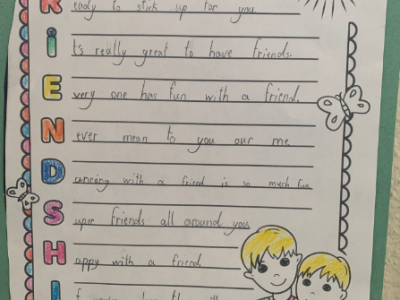 R eady to stick up for you.
I ts really great to have friends.
E very one has fun with a friend.
N ever mean to you our me.
D ancing with a friend is so much fun
S uper friends all around you
H appy with a friend
I f